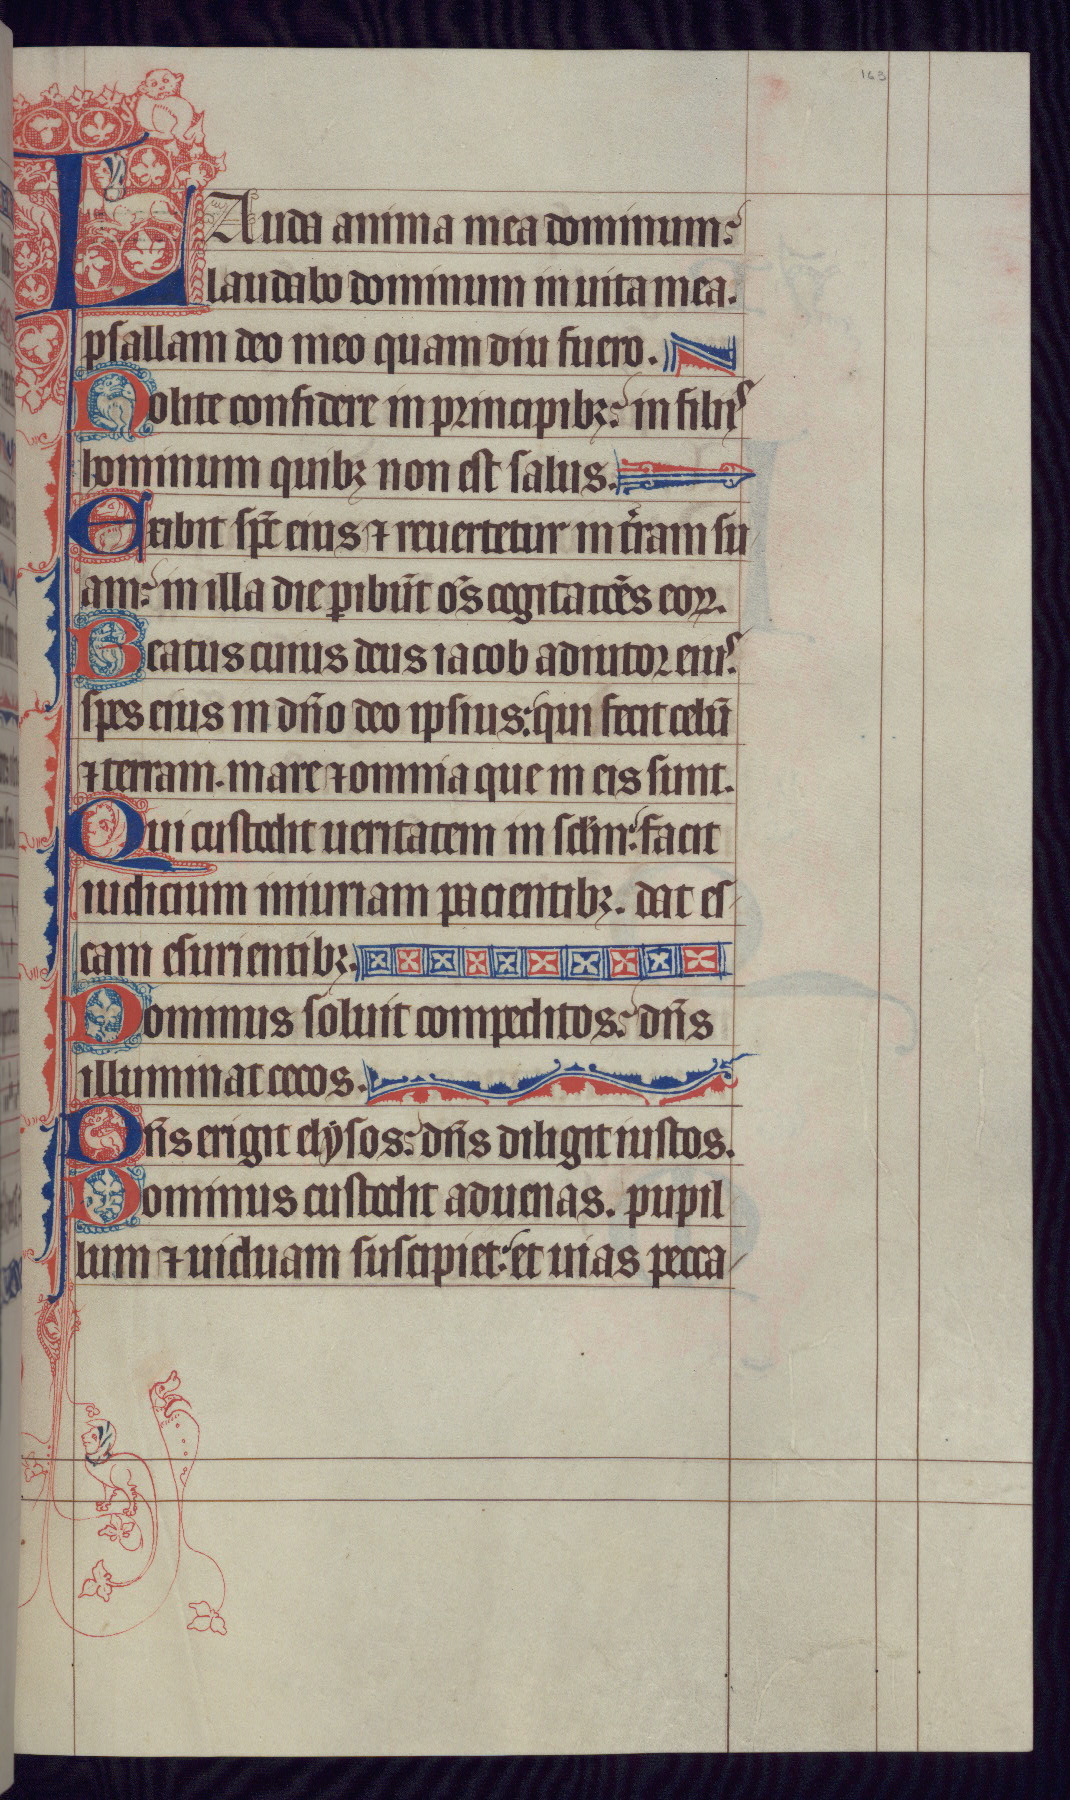 163
LAuda anima mea dominum:
laudabo dominum in uita mea.
psallam deo meo quam diu fuero.
Nolite confidere in principibꝫ: in filijs
hominum quibꝫ non est salus.
Exibit sp̄c eius ⁊ reuertetur in t̄ram su
am: in illa die ꝑibūt om̄s cogitatōēs eoꝝ.
Beatus cuius deus iacob adiutor eiuˢ:
spes eius in dn̄o deo ipsius: qui fecit celū
⁊ terram. mare ⁊ omnia que in eis sunt.
Qui custodit ueritatem in sclm̄: facit
iudicium iniuriam pacientibꝫ. dat es
cam esurientibꝫ.
Dominus soluit compeditos: dn̄s
illuminat cecos.
Dn̄s erigit elysos: dn̄s diligit iustos.
Dominus custodit aduenas. pupil
lum ⁊ uiduam suscipiet: et uias pecca